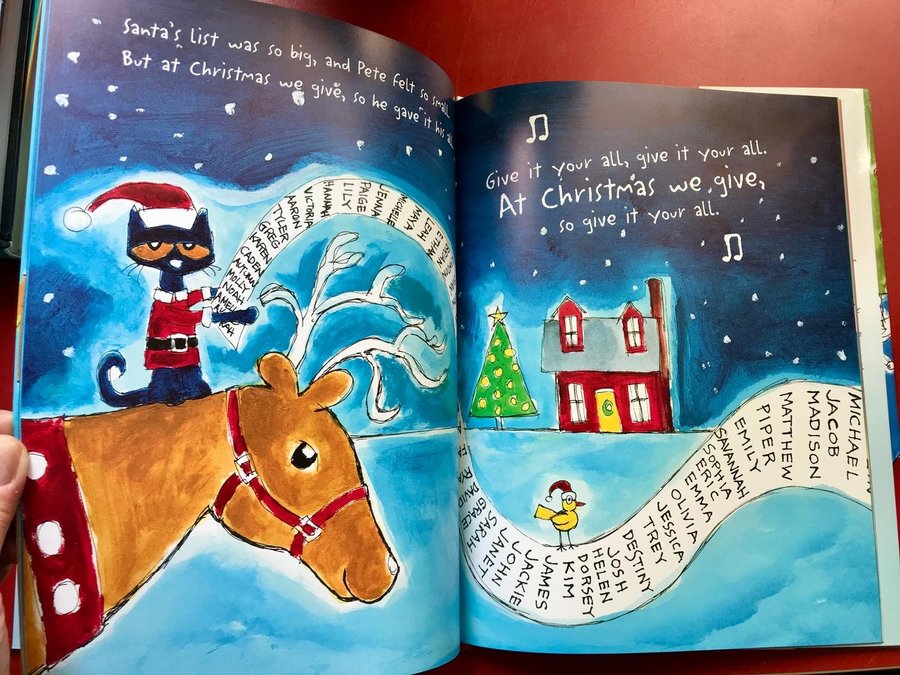 Santa's list was so big, and Pete felt so small.
But at Christmas we give, so he gave it his all.
NOAH
MOLLY
AUTUMN
CADEN
KAREN
GREG
TYLER
AARON
VICTORIA
HANNAH
LILY
PAIGE
JENNA
MICHELLE
MAYA
LEAH
ETHAN
Give it your all, give it your all.
At Christmas we give,
so give it your all.
DAVID
GRACE
SARAH
JANET
JOHN
JACKIE
JAMES
KIM
DORSEY
HELEN
JOSH
DESTINY
TREY
JESSICA
OLIVIA
EMMA
ERIC
SOPHIA
SAVANNAH
EMILY
PIPER
MATTHEW
MADISON
JACOB
MICHAEL